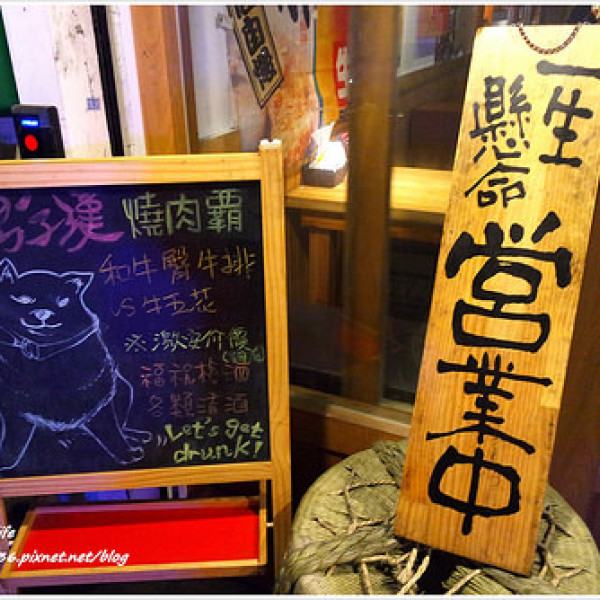 男子漢 燒肉霸
和牛臀牛排
VS牛五花
※激安價
福祝梅酒
各類清酒
Let's get
drunk!
一生
懸命
営業中
36.pixnet.net/blog